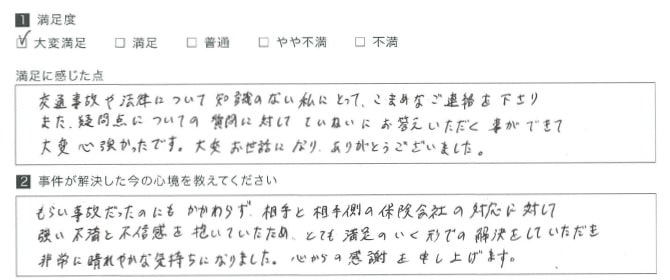 1 満足度
☑ 大変満足 □ 満足 □ 普通 □ やや不満 □ 不満
満足に感じた点
交通事故や法律について知識のない私にとって、こまめなご連絡を下さり
また、疑問点についての質問に対してていねいにお答えいただく事ができて
大変心強かったです。大変お世話になり、ありがとうございました。
2 事件が解決した今の心境を教えてください
もらい事故だったのにもかかわらず、相手と相手側の保険会社の対応に対して
強い不満と不信感を抱いていたため、とても満足のいく形での解決をしていただき
非常に晴れやかな気持ちになりました。心からの感謝を申し上げます。